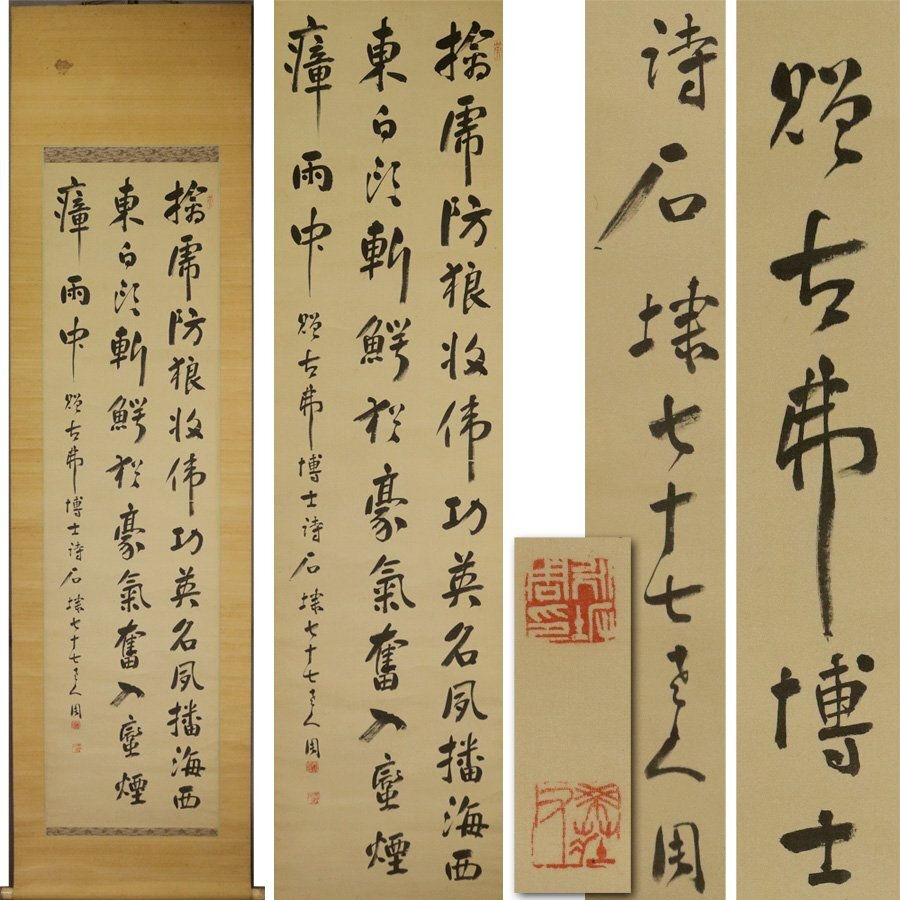 擒虎防狼收偉功英名夙播海西
東白頭斬鰐猶豪氣奮入蠻煙
瘴雨中 贈古弗博士詩 石埭七十七老人周
擒虎防狼收偉功英名夙播海西
東白頭斬鰐猶豪氣奮入蠻煙
瘴雨中 贈古弗博士詩 石埭七十七老人周
贈古弗博士
詩石埭七十七老人周
永坂周印